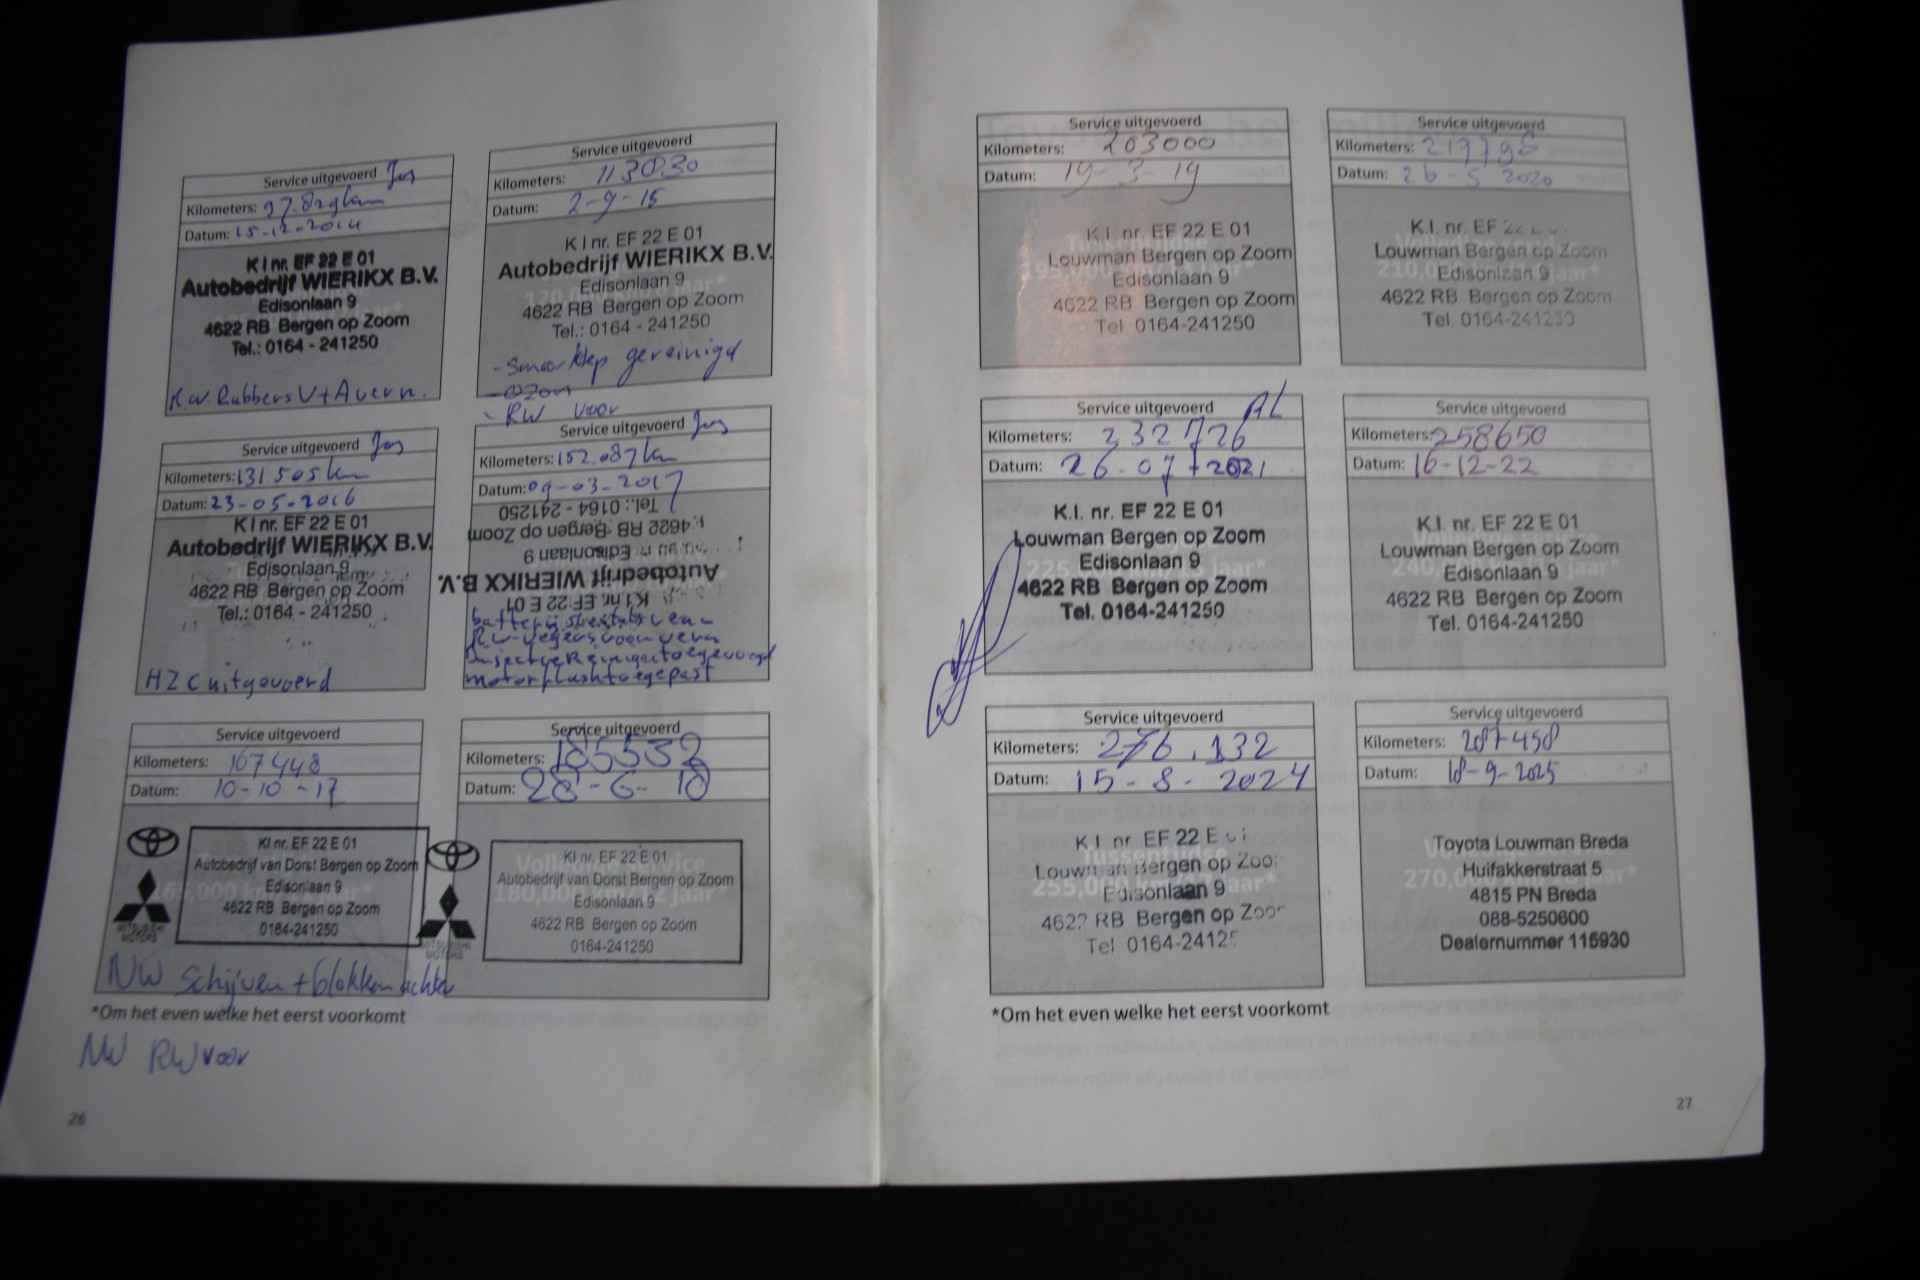 Service uitgevoerd Jos
Kilometers: 97.829km
Datum: 15-12-2014
K I nr. EF 22 E 01
Autobedrijf WIERIKX B.V.
Edisonlaan 9
4622 RB Bergen op Zoom
Tel.: 0164 - 241250
Service uitgevoerd
Kilometers: 113030
Datum: 2-9-15
K I nr. EF 22 E 01
Autobedrijf WIERIKX B.V.
Edisonlaan 9
4622 RB Bergen op Zoom
Tel.: 0164 - 241250
- Smoorklep gereinigd
- ozon
- RW voor
Service uitgevoerd Jos
Kilometers: 131505km
Datum: 23-05-2016
K I nr. EF 22 E 01
Autobedrijf WIERIKX B.V.
Edisonlaan 9
4622 RB Bergen op Zoom
Tel.: 0164 - 241250
HZC uitgevoerd
Service uitgevoerd Jos
Kilometers: 152.087km
Datum: 09-03-2017
Tel.: 0164 - 241250
4622 RB Bergen op Zoom
Edisonlaan 9
Autobedrijf WIERIKX B.V.
K I nr. EF 22 E 01
motorflush toegepast
Service uitgevoerd
Kilometers: 167448
Datum: 10-10-17
KI nr. EF 22 E 01
Autobedrijf van Dorst Bergen op Zoom
Edisonlaan 9
4622 RB Bergen op Zoom
0164-241250
MITSUBISHI
MOTORS
NW schijven + blokken achter
Service uitgevoerd
Kilometers: 185532
Datum: 28-6-18
KI nr. EF 22 E 01
Autobedrijf van Dorst Bergen op Zoom
Edisonlaan 9
4622 RB Bergen op Zoom
0164-241250
MITSUBISHI
MOTORS
*Om het even welke het eerst voorkomt
NW RW voor
26
Service uitgevoerd
Kilometers: 203000
Datum: 19-3-19
K.I. nr. EF 22 E 01
Louwman Bergen op Zoom
Edisonlaan 9
4622 RB Bergen op Zoom
Tel 0164-241250
Service uitgevoerd
Kilometers: 217795
Datum: 26-5 2020
K.I. nr. EF 22
Louwman Bergen op Zoom
Edisonlaan 9
4622 RB Bergen op Zoom
Tel. 0164-241250
Service uitgevoerd AL
Kilometers: 232726
Datum: 26-07-2021
K.I. nr. EF 22 E 01
Louwman Bergen op Zoom
Edisonlaan 9
4622 RB Bergen op Zoom
Tel. 0164-241250
Service uitgevoerd
Kilometers: 258650
Datum: 16-12-22
K.I. nr. EF 22 E 01
Louwman Bergen op Zoom
Edisonlaan 9
4622 RB Bergen op Zoom
Tel. 0164-241250
Service uitgevoerd
Kilometers: 276.132
Datum: 15-8-2024
K I nr EF 22 E 01
Louwman Bergen op Zoom
Edisonlaan 9
4622 RB Bergen op Zoom
Tel 0164-24125
Service uitgevoerd
Kilometers: 287458
Datum: 18-9-2025
Toyota Louwman Breda
Huifakkerstraat 5
4815 PN Breda
088-5250600
Dealernummer 115930
*Om het even welke het eerst voorkomt
27